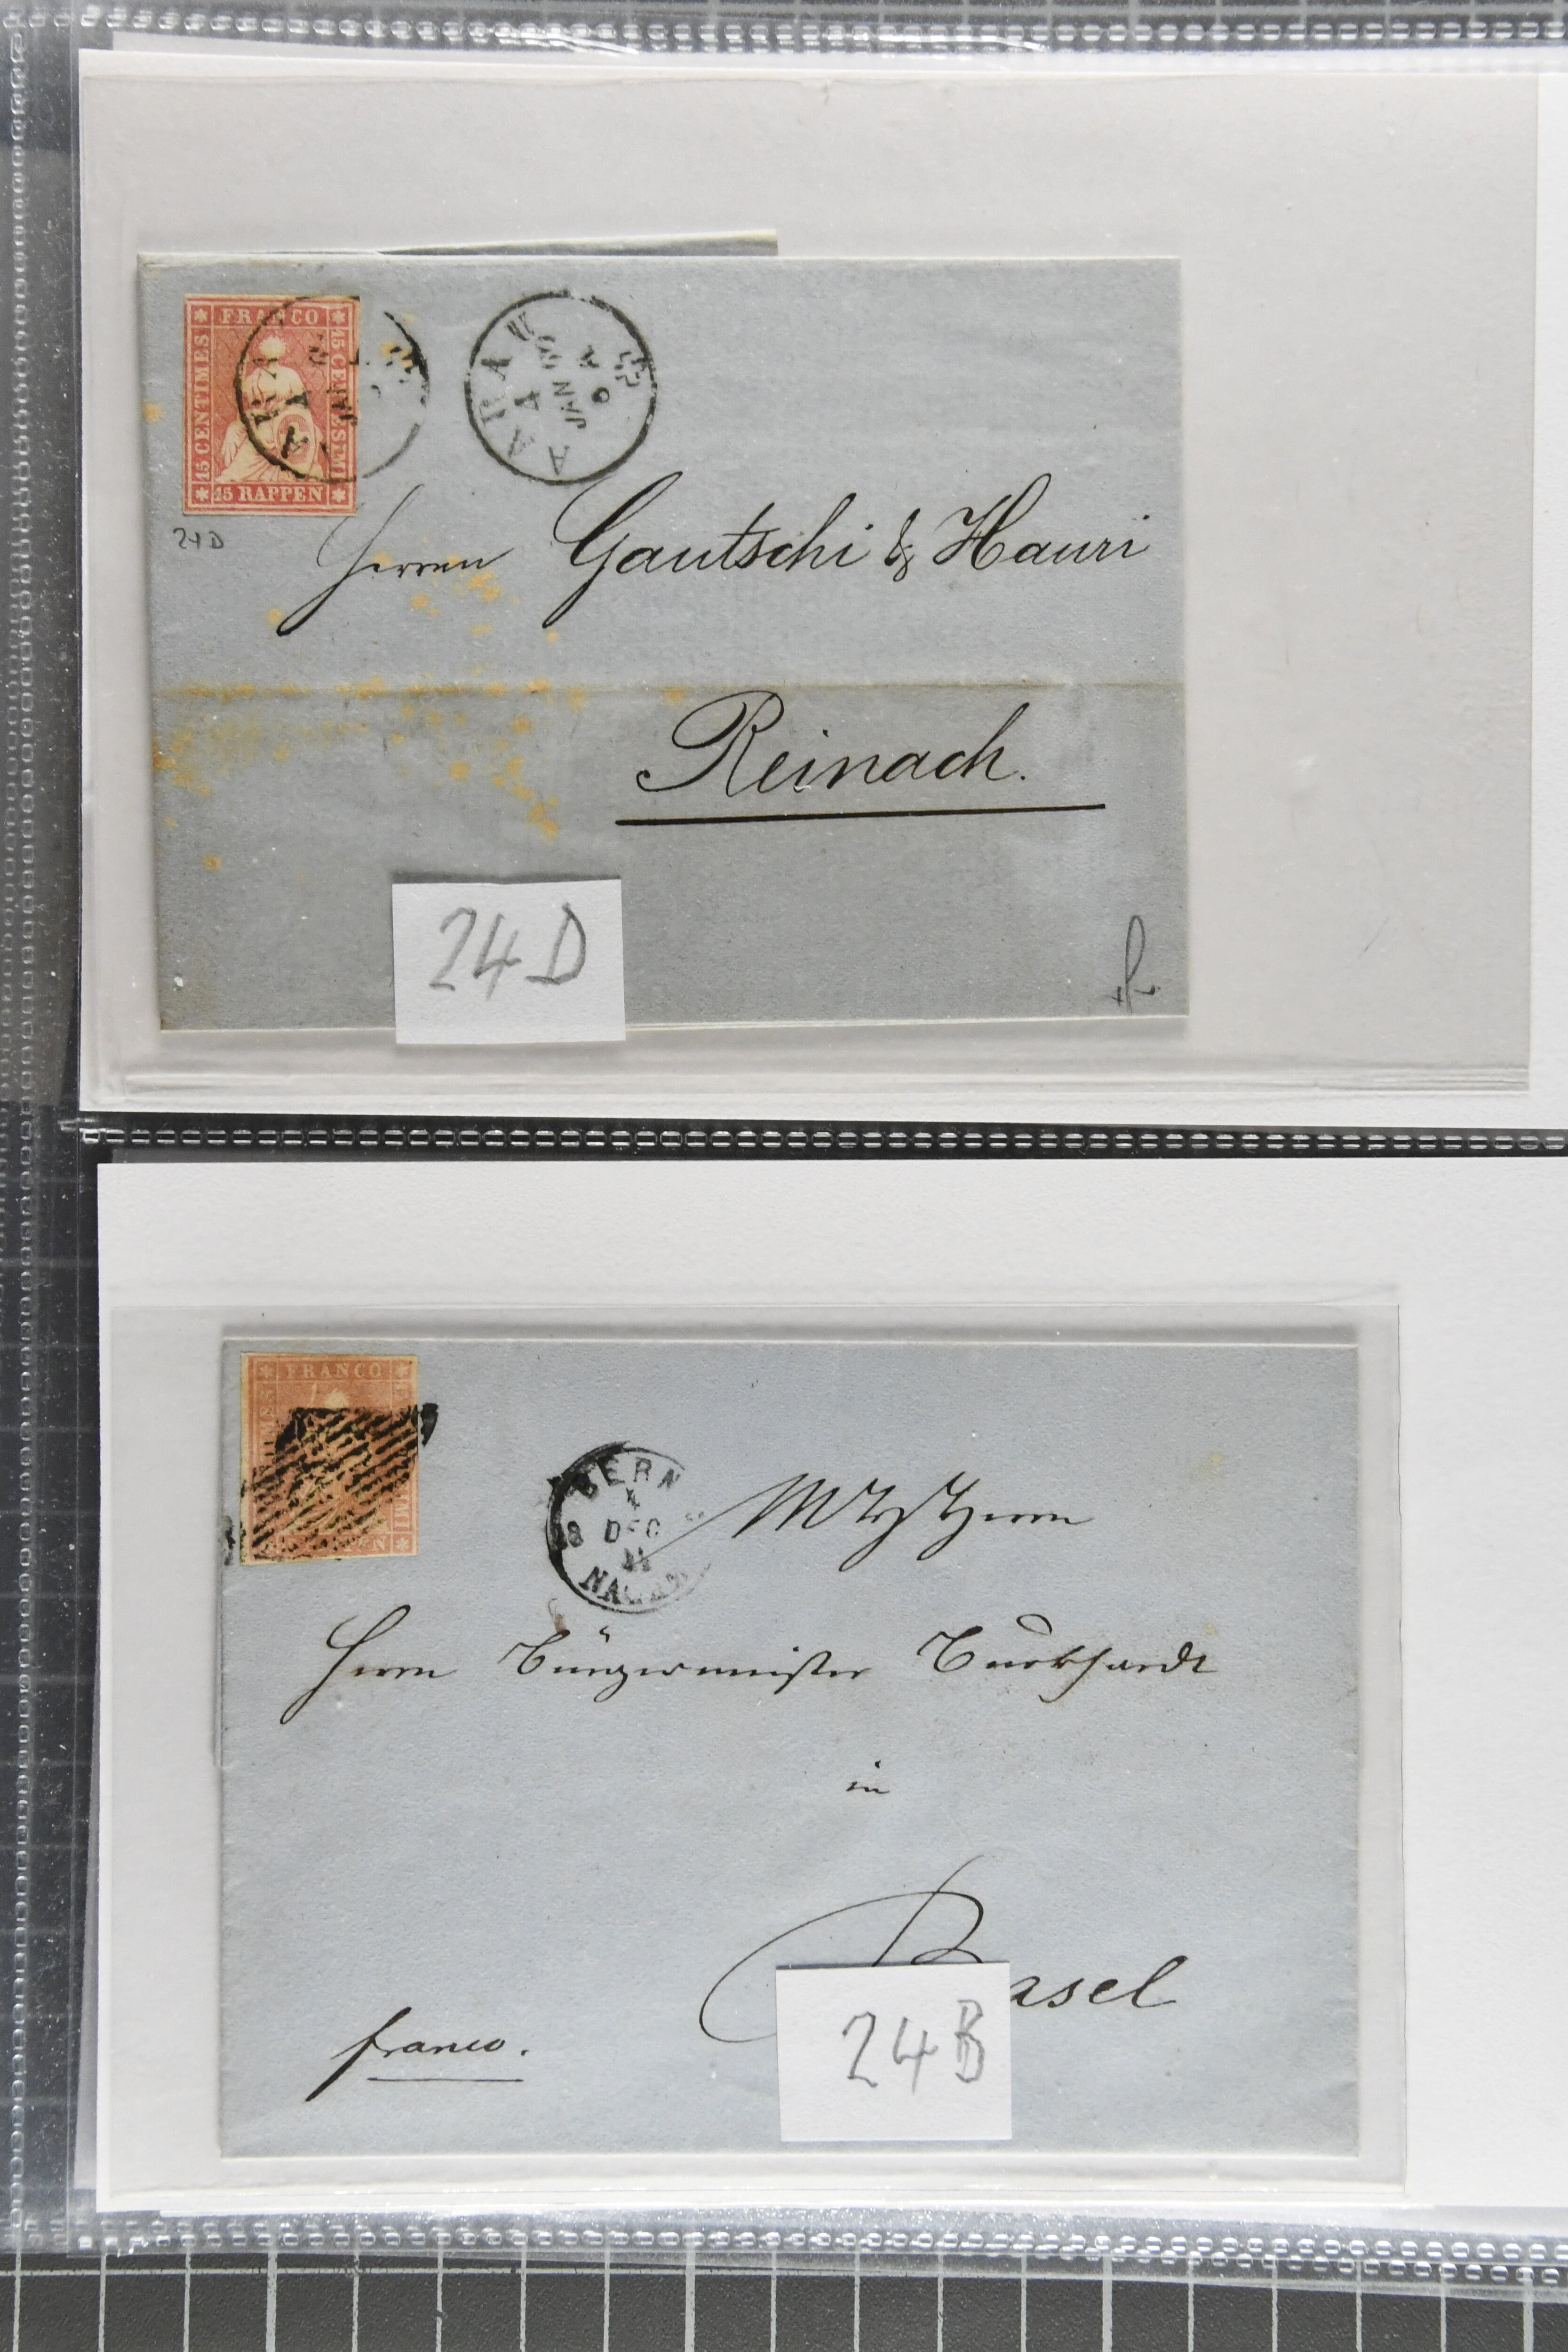 FRANCO
15 CENTIMES
15 CENTESIMI
15 RAPPEN
AARAU
4
JAN 60
24 D
Herren Gautschi & Hauri
Reinach.
24 D
FRANCO
BERN
8 DEC
Herrn Bürgermeister Burkhardt
in
Basel
franco.
24 B